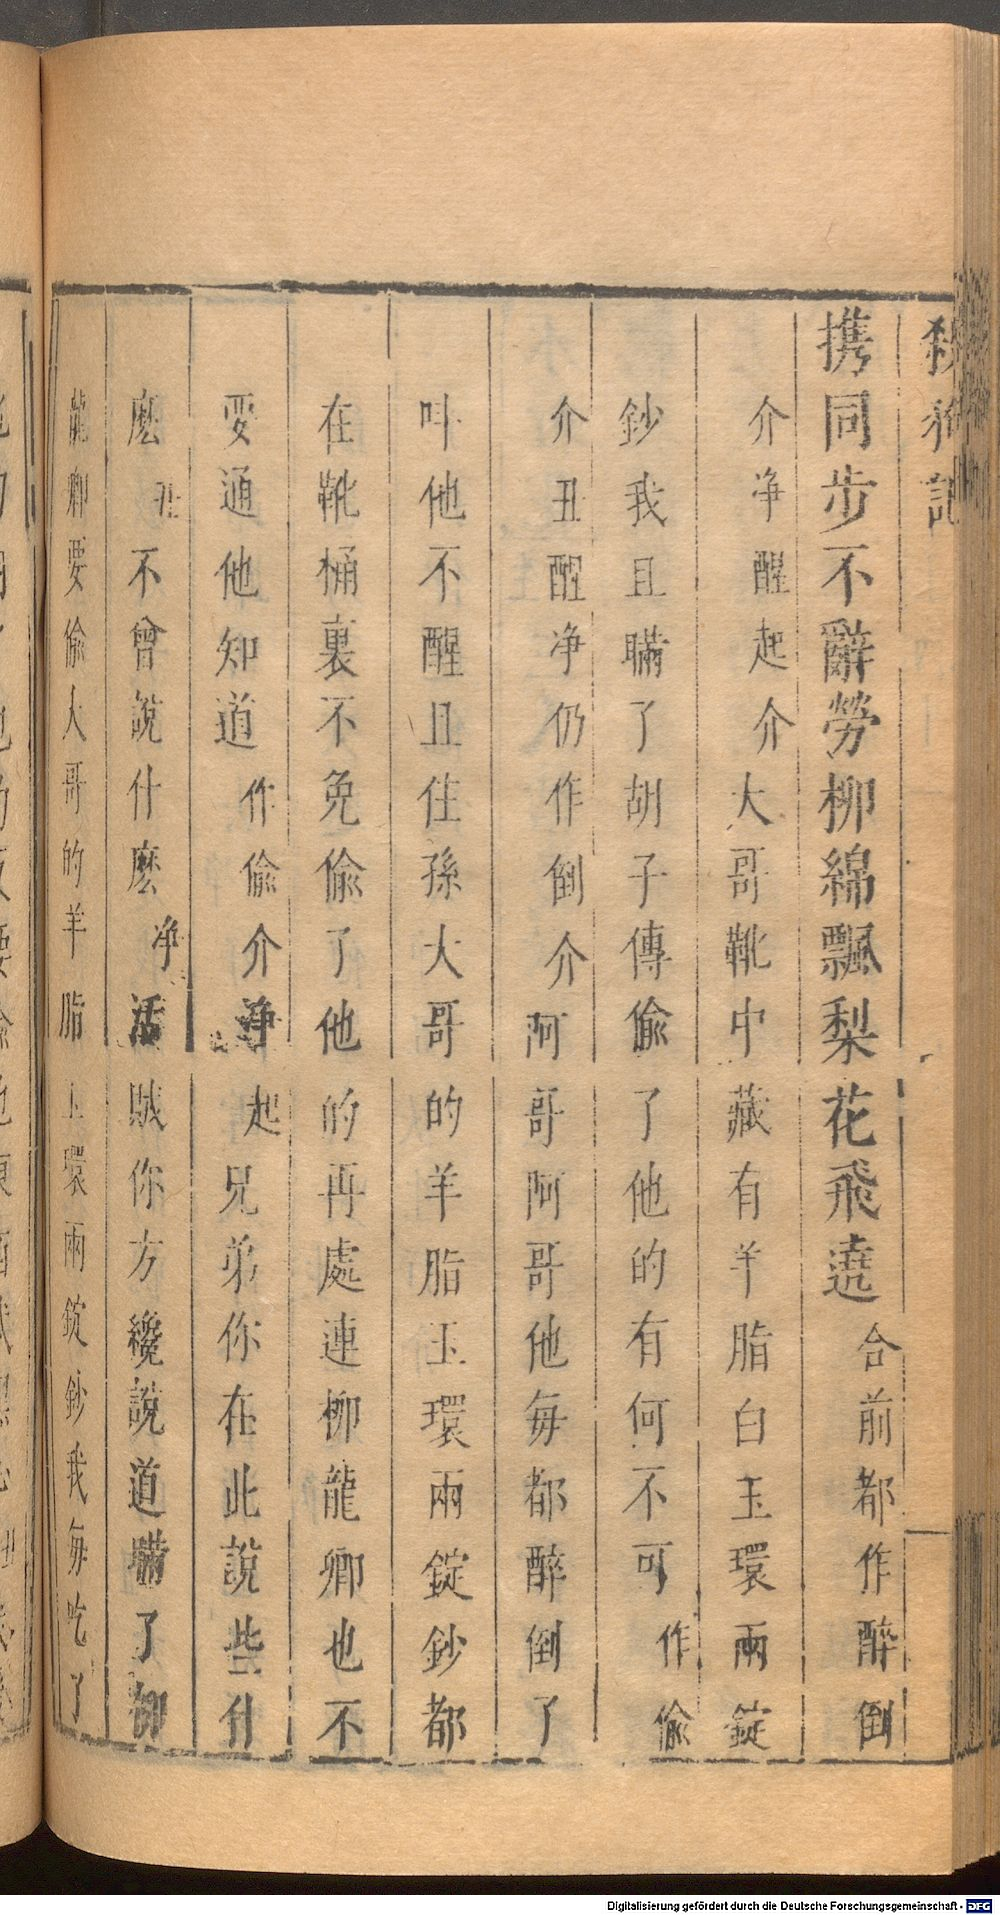 殺狗記
携同步不辭勞柳綿飄梨花飛遶合前都作醉倒
介净醒起介大哥靴中藏有羊脂白玉環兩錠
鈔我且瞞了胡子傳偸了他的有何不可作偸
介丑醒净仍作倒介阿哥阿哥他每都醉倒了
呌他不醒且住孫大哥的羊脂玉環兩錠鈔都
在靴桶裏不免偸了他的再處連柳龍卿也不
要通他知道作偸介净起兄弟你在此說些什
麽丑不曾說什麽净活賊你方纔說道瞞了柳
龍卿要偸大哥的羊脂玉環兩錠鈔我每吃了
Digitalisierung gefördert durch die Deutsche Forschungsgemeinschaft - DFG